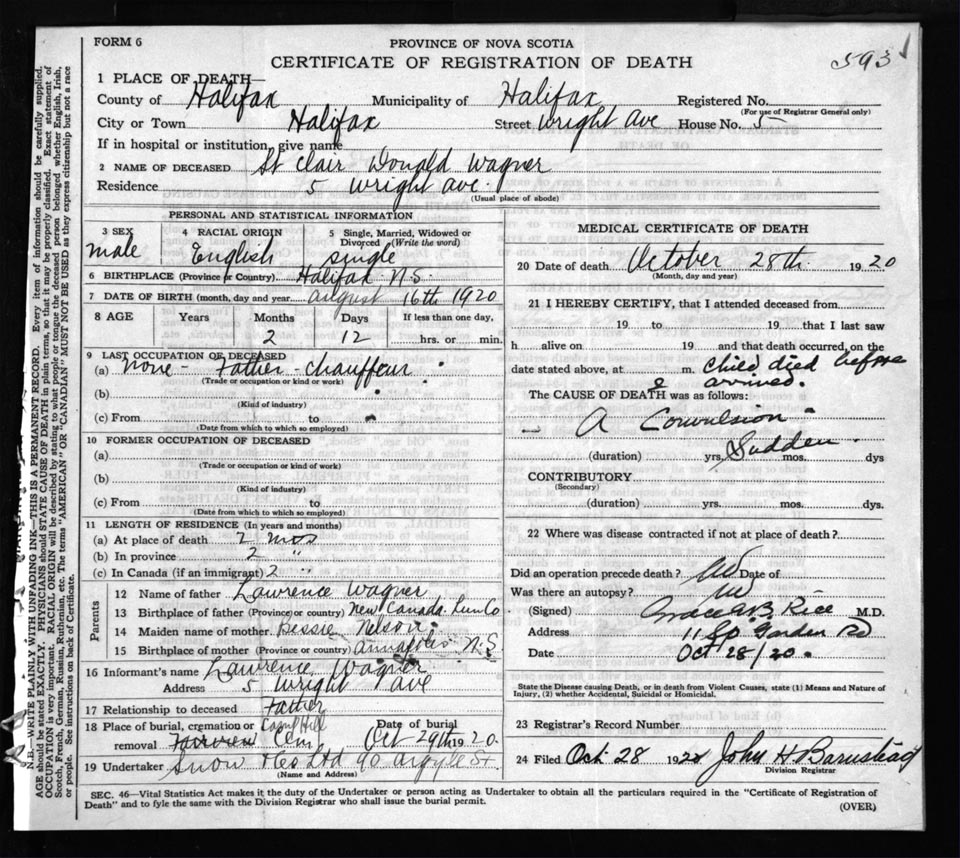 FORM 6
PROVINCE OF NOVA SCOTIA
CERTIFICATE OF REGISTRATION OF DEATH
593
1 PLACE OF DEATH—
County of Halifax Municipality of Halifax Registered No.
(For use of Registrar General only)
City or Town Halifax Street Wright Ave House No. 5
If in hospital or institution, give name
2 NAME OF DECEASED St Clair Donald Wagner
Residence 5 Wright Ave.
(Usual place of abode)
PERSONAL AND STATISTICAL INFORMATION
3 SEX 4 RACIAL ORIGIN 5 Single, Married, Widowed or Divorced (Write the word)
male English single
6 BIRTHPLACE (Province or Country). Halifax N.S.
7 DATE OF BIRTH (month, day and year. august 16th 1920
8 AGE Years Months Days If less than one day,
2 12 hrs. or min.
9 LAST OCCUPATION OF DECEASED
(a) none - Father - chauffeur
(Trade or occupation or kind or work)
(b)
(Kind of industry)
(c) From to
(Date from which to which so employed)
10 FORMER OCCUPATION OF DECEASED
(a)
(Trade or occupation or kind of work)
(b)
(Kind of industry)
(c) From to
(Date from which to which so employed)
11 LENGTH OF RESIDENCE (In years and months)
(a) At place of death 2 mos
(b) In province 2 "
(c) In Canada (if an immigrant) 2 "
Parents
12 Name of father Lawrence Wagner
13 Birthplace of father (Province or country) New Canada Lun Co
14 Maiden name of mother Bessie Nelson
15 Birthplace of mother (Province or country) annapolis N.S
16 Informant's name Lawrence Wagner
Address 5 Wright ave
17 Relationship to deceased Father
18 Place of burial, cremation or Camp Hill Date of burial
removal Fairview Cem Oct 29th 1920
19 Undertaker Snow & Co Ltd 90 Argyle St
(Name and Address)
MEDICAL CERTIFICATE OF DEATH
20 Date of death October 28th 1920
(Month, day and year)
21 I HEREBY CERTIFY, that I attended deceased from
19 to 19 that I last saw
h alive on 19 and that death occurred, on the
date stated above, at m. child died before
I arrived.
The CAUSE OF DEATH was as follows:
A Convulsion
Sudden
(duration) yrs. mos. dys
CONTRIBUTORY
(Secondary)
(duration) yrs. mos. dys.
22 Where was disease contracted if not at place of death?
Did an operation precede death? No Date of
Was there an autopsy? No
(Signed) Grace B Rice M.D.
Address 11 Sp Garden Rd
Date Oct 28/20.
State the Disease causing Death, or in death from Violent Causes, state (1) Means and Nature of
Injury, (2) whether Accidental, Suicidal or Homicidal.
23 Registrar's Record Number
24 Filed Oct 28 1920 John H Barnstead
Division Registrar
SEC. 46—Vital Statistics Act makes it the duty of the Undertaker or person acting as Undertaker to obtain all the particulars required in the "Certificate of Registration of
Death" and to fyle the same with the Division Registrar who shall issue the burial permit.
(OVER)
N.B.—WRITE PLAINLY WITH UNFADING INK—THIS IS A PERMANENT RECORD. Every item of information should be carefully supplied.
AGE should be stated EXACTLY. PHYSICIANS should STATE CAUSE OF DEATH in plain terms, so that it may be properly classified. Exact statement of
OCCUPATION is very important. RACIAL ORIGIN will be described by stating to what people or tongue the deceased person belonged, whether English, Irish,
Scotch, French, German, Russian, Ruthenian, etc. The terms "AMERICAN" OR "CANADIAN" MUST NOT BE USED as they express citizenship but not a race
or people. See instructions on back of Certificate.